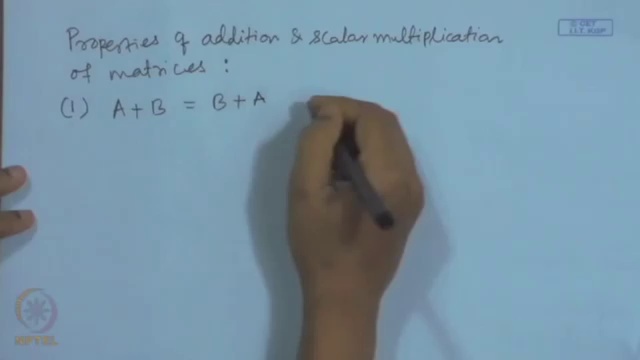 Properties of addition & scalar multiplication
of matrices :
(1) A + B = B + A
© CET
I.I.T. KGP
NPTEL